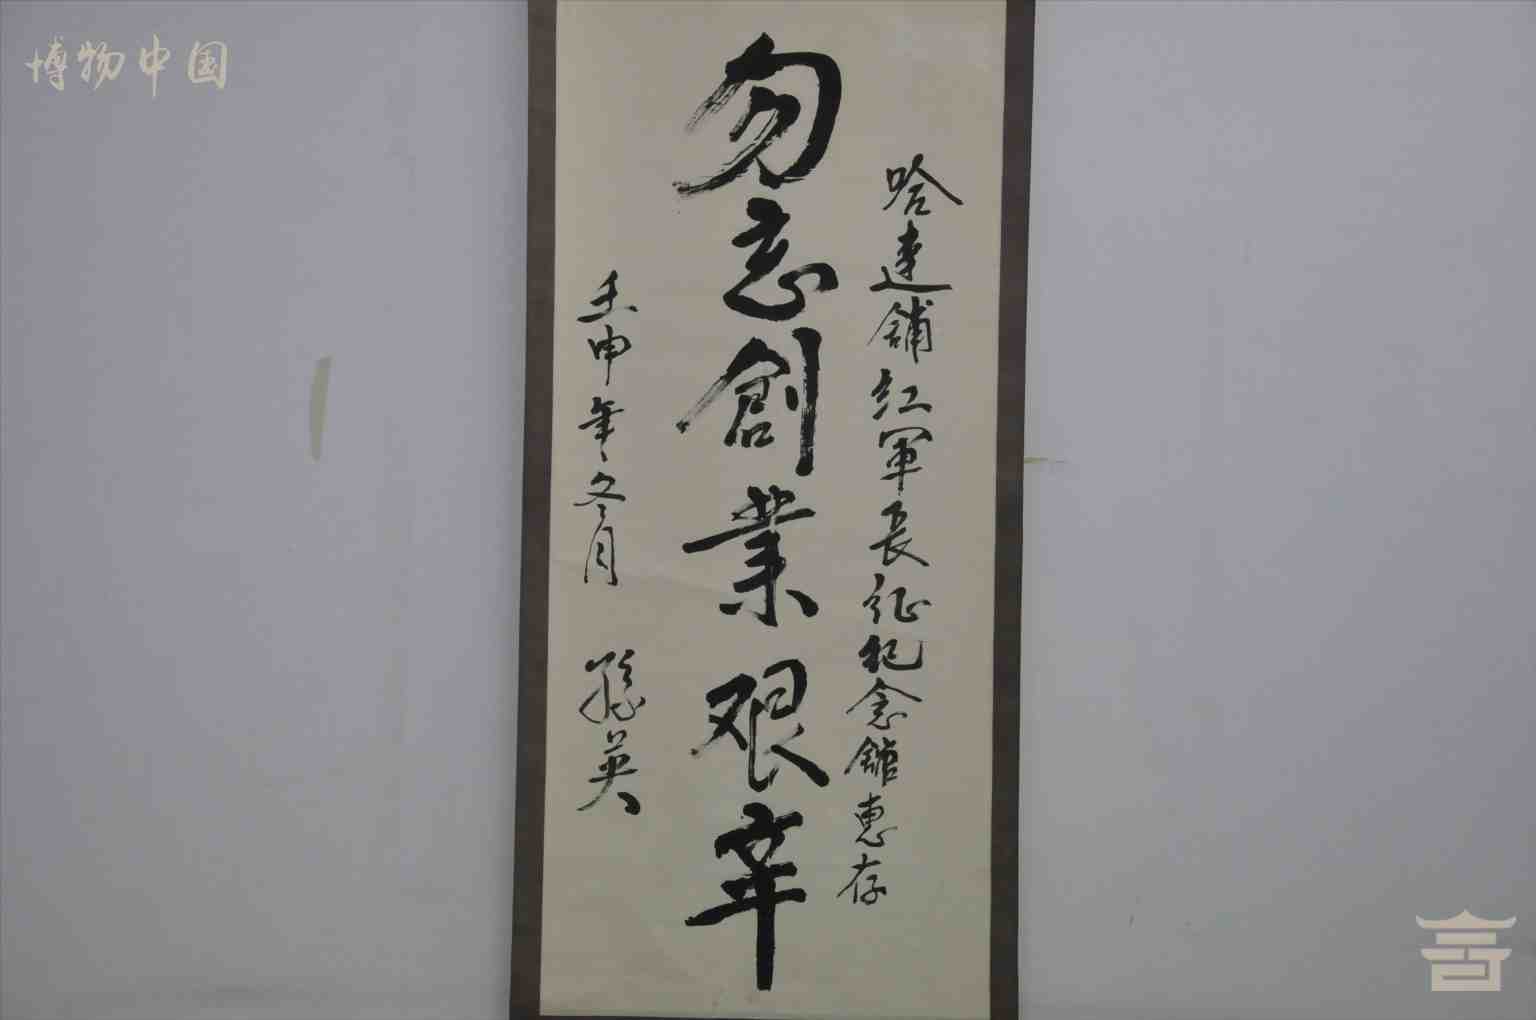 博物中国
哈達鋪紅軍長征紀念館惠存
勿忘創業艱辛
壬申年冬月 孫英